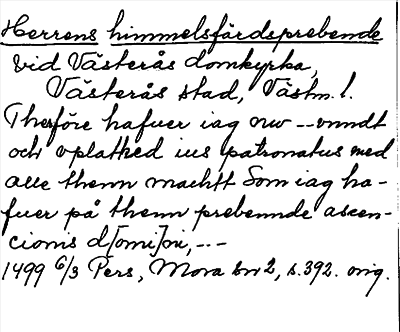 Herrens himmelsfärdsprebende
vid Västerås domkyrka,
Västerås stad, Västm. l.
Therföre hafuer iag nw -- vnndt
och vplathed ius patronatus med
alle thenn machtt Som iag ha-
fuer på thenn prebennde ascen-
cionis d[omi]ni, --
1499 6/3 Pers, Mora br 2, s. 392. orig.